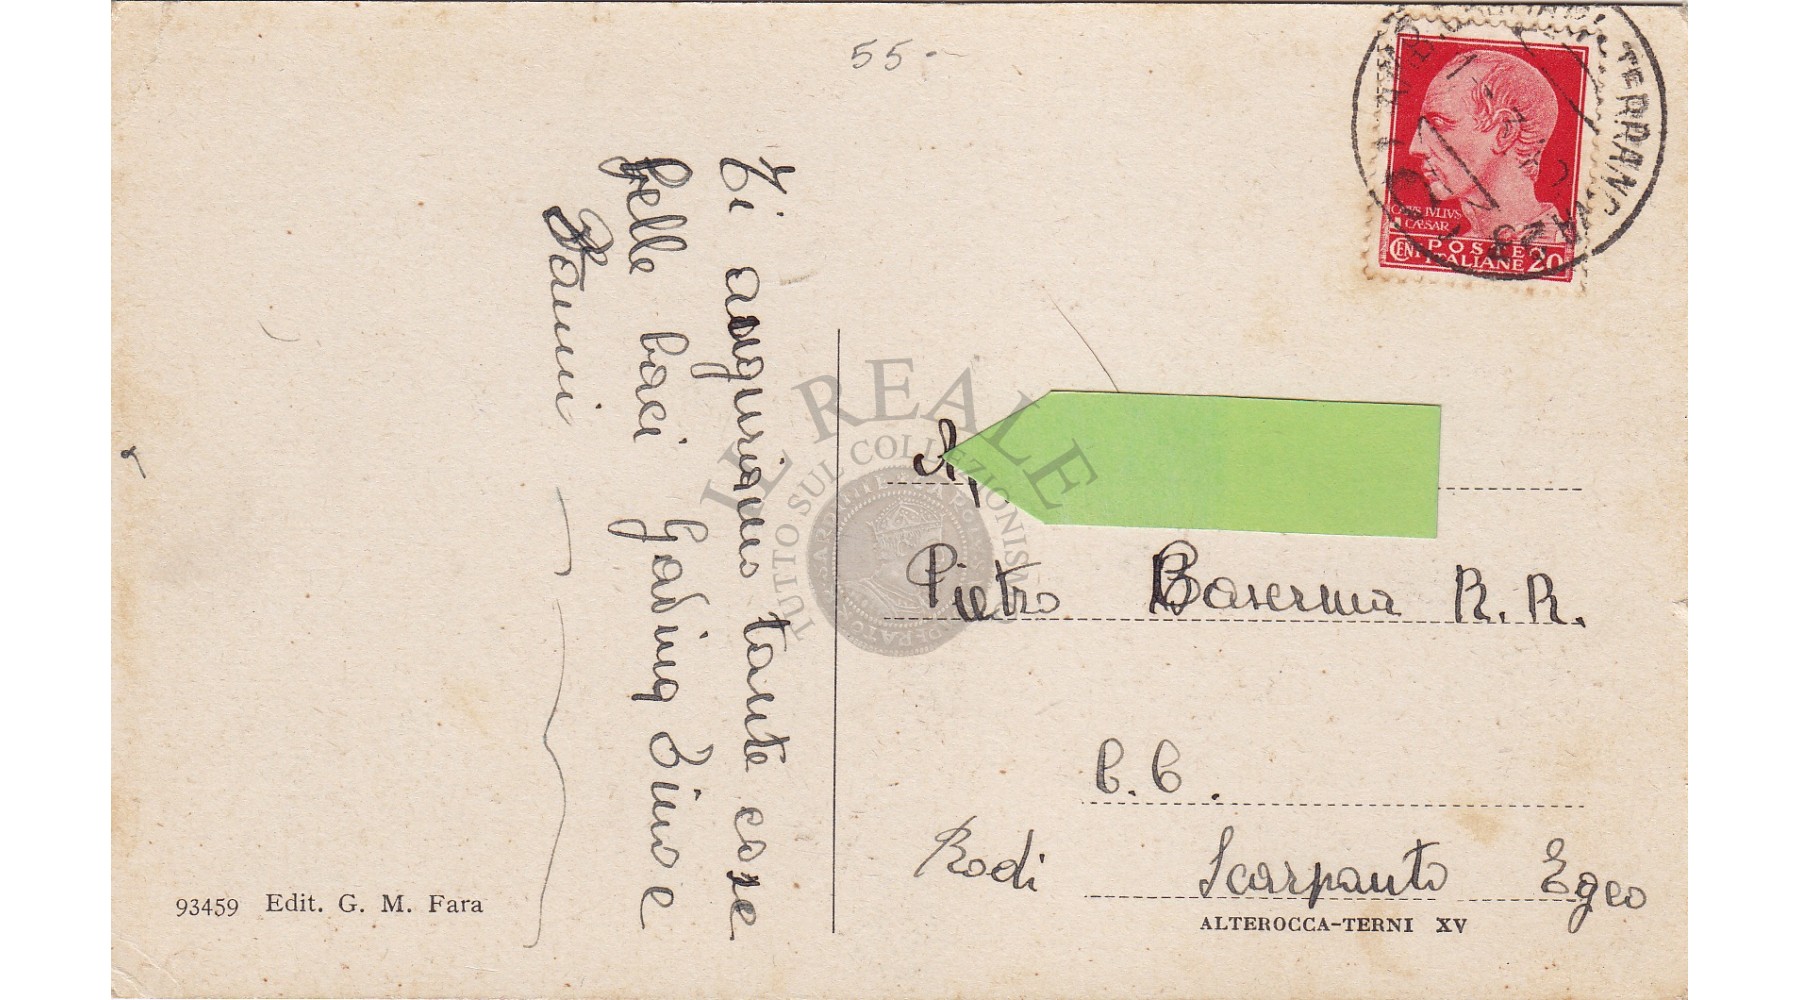 55.-
Ti auguriamo tante cose
belle baci Gavina Dino e
Vanni
TERRANOVA
CAIVS IVLIVS
CÆSAR
POSTE
CENT ITALIANE 20
IL REALE
TUTTO SUL COLLEZIONISMO
Pietro Baserma R. R.
C. C.
Rodi Scarpanto Egeo
93459 Edit. G. M. Fara
ALTEROCCA-TERNI XV